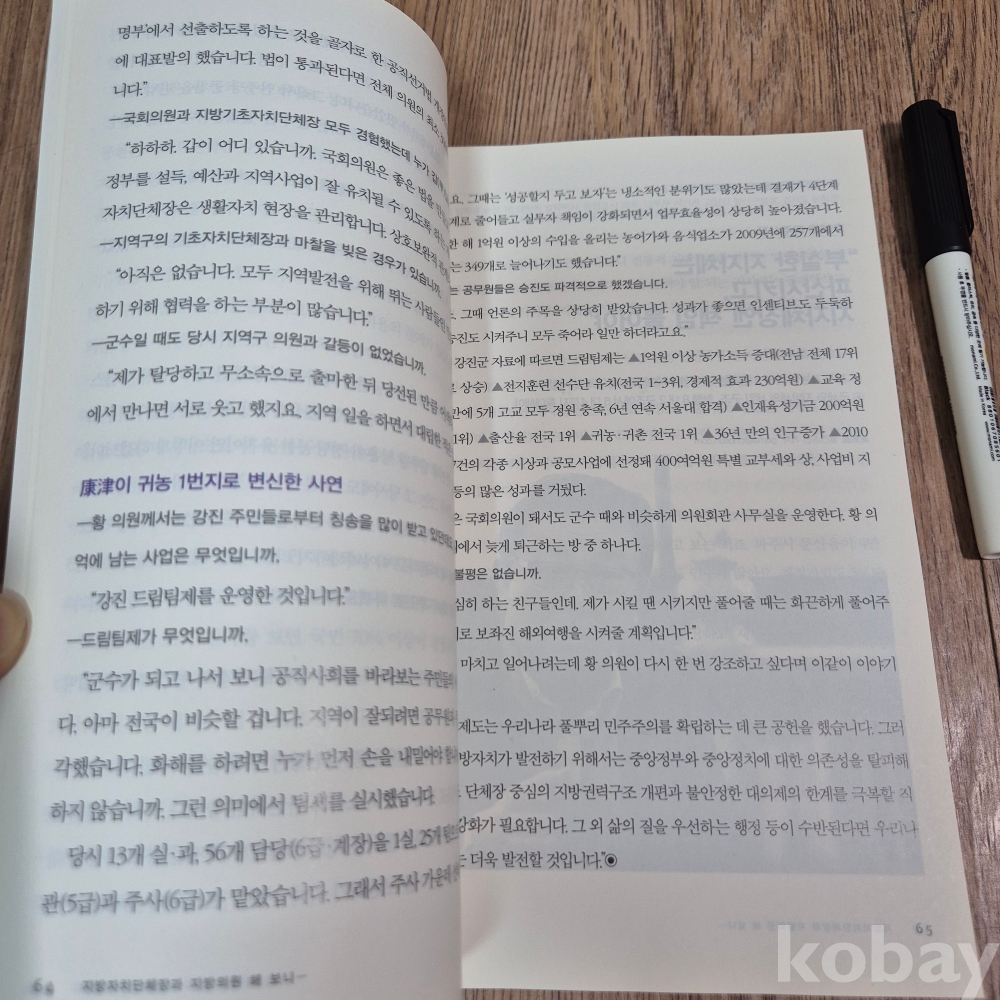 명부'에서 선출하도록 하는 것을 골자로 한 공직선거법
에 대표발의 했습니다. 법이 통과된다면 전체 의원의 최소
니다."
—국회의원과 지방기초자치단체장 모두 경험했는데 누가
"하하하. 갑이 어디 있습니까. 국회의원은 좋은 법을
정부를 설득, 예산과 지역사업이 잘 유치될 수 있도록 하는
자치단체장은 생활자치 현장을 관리합니다. 상호보완적
—지역구의 기초자치단체장과 마찰을 빚은 경우가 있습니까.
"아직은 없습니다. 모두 지역발전을 위해 뛰는 사람들인
하기 위해 협력을 하는 부분이 많습니다."
—군수일 때도 당시 지역구 의원과 갈등이 없었습니까.
"제가 탈당하고 무소속으로 출마한 뒤 당선된 만큼
에서 만나면 서로 웃고 했지요. 지역 일을 하면서 대립한
康津이 귀농 1번지로 변신한 사연
—황 의원께서는 강진 주민들로부터 칭송을 많이 받고
억에 남는 사업은 무엇입니까.
"강진 드림팀제를 운영한 것입니다."
—드림팀제가 무엇입니까.
"군수가 되고 나서 보니 공직사회를 바라보는 주민들의
다. 아마 전국이 비슷할 겁니다. 지역이 잘되려면
각했습니다. 화해를 하려면 누가 먼저 손을 내밀어야
하지 않습니까. 그런 의미에서 팀제를 실시했습니다.
당시 13개 실·과, 56개 담당(6급·계장)을 1실, 25개
관(5급)과 주사(6급)가 맡았습니다. 그래서 주사 가운데
64 지방자치단체장과 지방의원 해 보니…
요. 그때는 '성공할지 두고 보자'는 냉소적인 분위기도 많았는데 결재가 4단계
계로 줄어들고 실무자 책임이 강화되면서 업무효율성이 상당히 높아졌습니다.
한 해 1억원 이상의 수입을 올리는 농어가와 음식업소가 2009년에 257개에서
는 349개로 늘어나기도 했습니다."
는 공무원들은 승진도 파격적으로 했겠습니다.
그때 언론의 주목을 상당히 받았습니다. 성과가 좋으면 인센티브도 두둑하
진도 시켜주니 모두 죽어라 일만 하더라고요."
강진군 자료에 따르면 드림팀제는 ▲1억원 이상 농가소득 증대(전남 전체 17위
상승) ▲전지훈련 선수단 유치(전국 1~3위, 경제적 효과 230억원) ▲교육 정
만에 5개 고교 모두 정원 충족, 6년 연속 서울대 합격) ▲인재육성기금 200억원
1위) ▲출산율 전국 1위 ▲귀농·귀촌 전국 1위 ▲36년 만의 인구증가 ▲2010
건의 각종 시상과 공모사업에 선정돼 400여억원 특별 교부세와 상, 사업비 지
등의 많은 성과를 거뒀다.
은 국회의원이 돼서도 군수 때와 비슷하게 의원회관 사무실을 운영한다. 황 의
에서 늦게 퇴근하는 방 중 하나다.
불평은 없습니까.
심히 하는 친구들인데, 제가 시킬 땐 시키지만 풀어줄 때는 화끈하게 풀어주
로 보좌진 해외여행을 시켜줄 계획입니다."
마치고 일어나려는데 황 의원이 다시 한 번 강조하고 싶다며 이같이 이야기
제도는 우리나라 풀뿌리 민주주의를 확립하는 데 큰 공헌을 했습니다. 그러
방자치가 발전하기 위해서는 중앙정부와 중앙정치에 대한 의존성을 탈피해
단체장 중심의 지방권력구조 개편과 불안정한 대의제의 한계를 극복할 직
강화가 필요합니다. 그 외 삶의 질을 우선하는 행정 등이 수반된다면 우리나
는 더욱 발전할 것입니다."◉
65
kobay